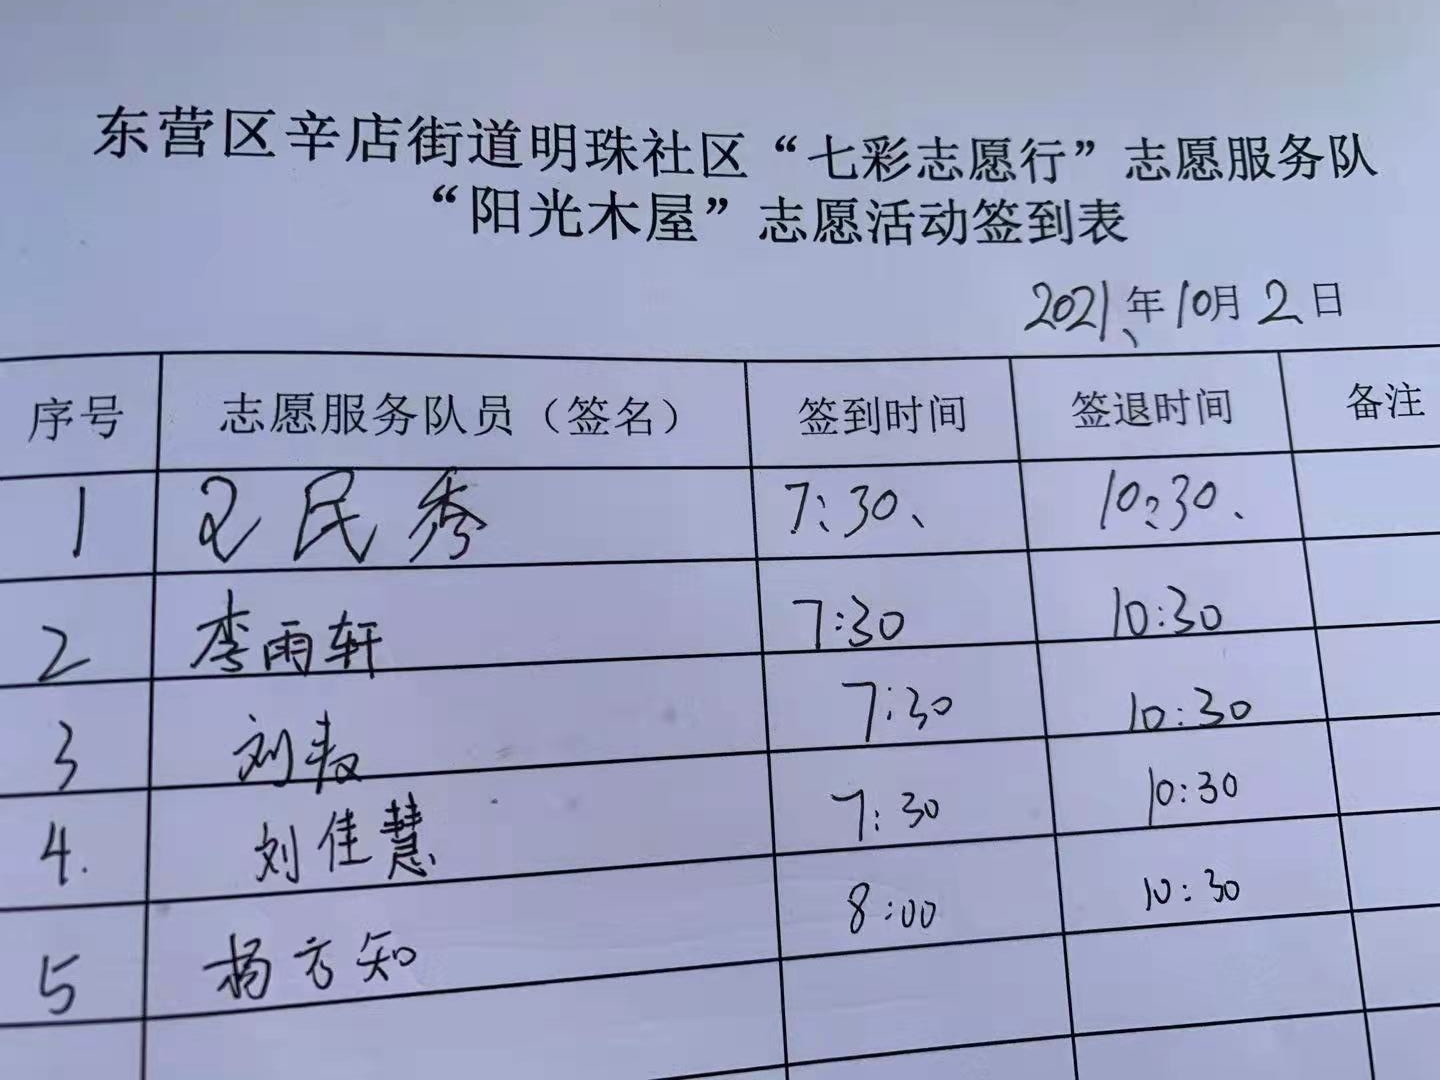 东营区辛店街道明珠社区“七彩志愿行”志愿服务队
“阳光木屋”志愿活动签到表
2021、年10月2日
序号 志愿服务队员（签名） 签到时间 签退时间 备注
1 民秀 7:30、 10:30、
2 李雨轩 7:30 10:30
3 刘 7:30 10:30
4. 刘佳慧 7:30 10:30
5 杨方知 8:00 10:30